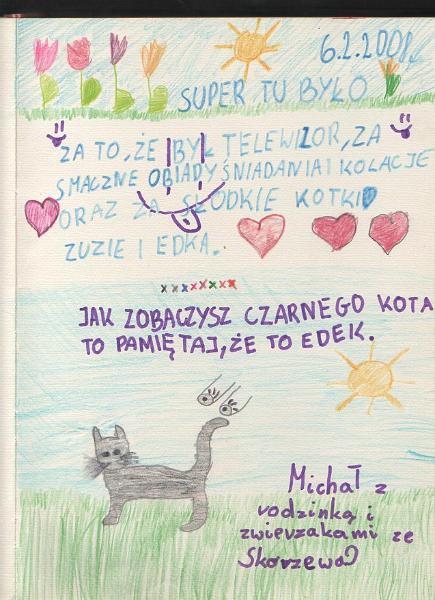 6.2.2008r.
SUPER TU BYŁO
ZA TO, ŻE BYŁ TELEWIZOR, ZA
SMACZNE OBIADY ŚNIADANIA I KOLACJE
ORAZ ZA SŁODKIE KOTKI
ZUZIE I EDKA.
JAK ZOBACZYSZ CZARNEGO KOTA
TO PAMIĘTAJ, ŻE TO EDEK.
Michał z
rodzinką i
zwierzakami ze
Skorzewa